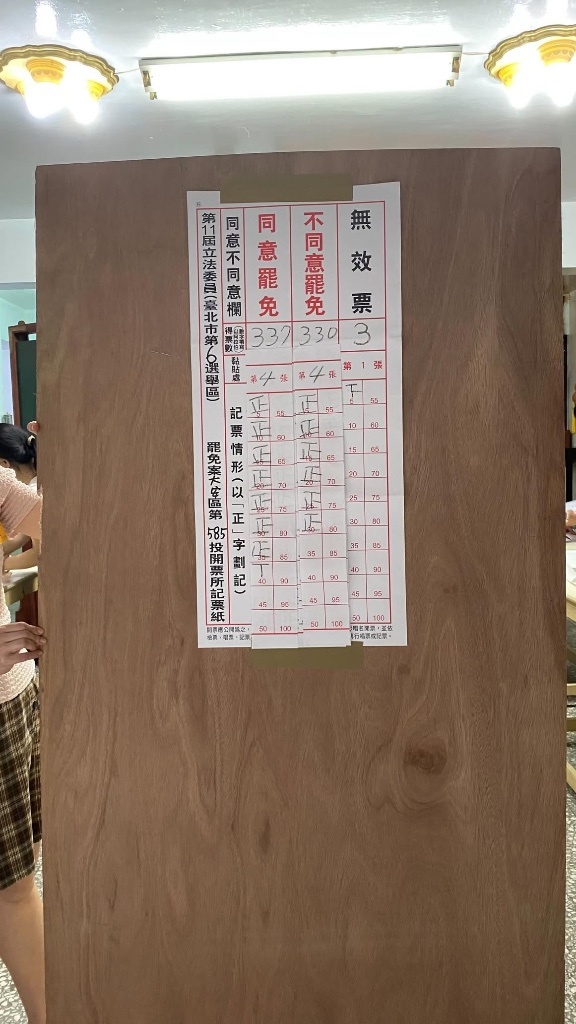 第11屆立法委員(臺北市第6選舉區) 罷免案大安區第585投開票所記票紙
同意不同意欄
同意罷免
不同意罷免
無效票
得票數
337
330
3
黏貼處
第4張
第4張
第1張
記票情形(以「正」字劃記)
正 55
正 60
正 65
正 70
正 75
正 80
正 85
40 90
45 95
50 100
正 55
正 60
正 65
正 70
正 75
正 80
35 85
40 90
45 95
50 100
5 55
10 60
15 65
20 70
25 75
30 80
35 85
40 90
45 95
50 100